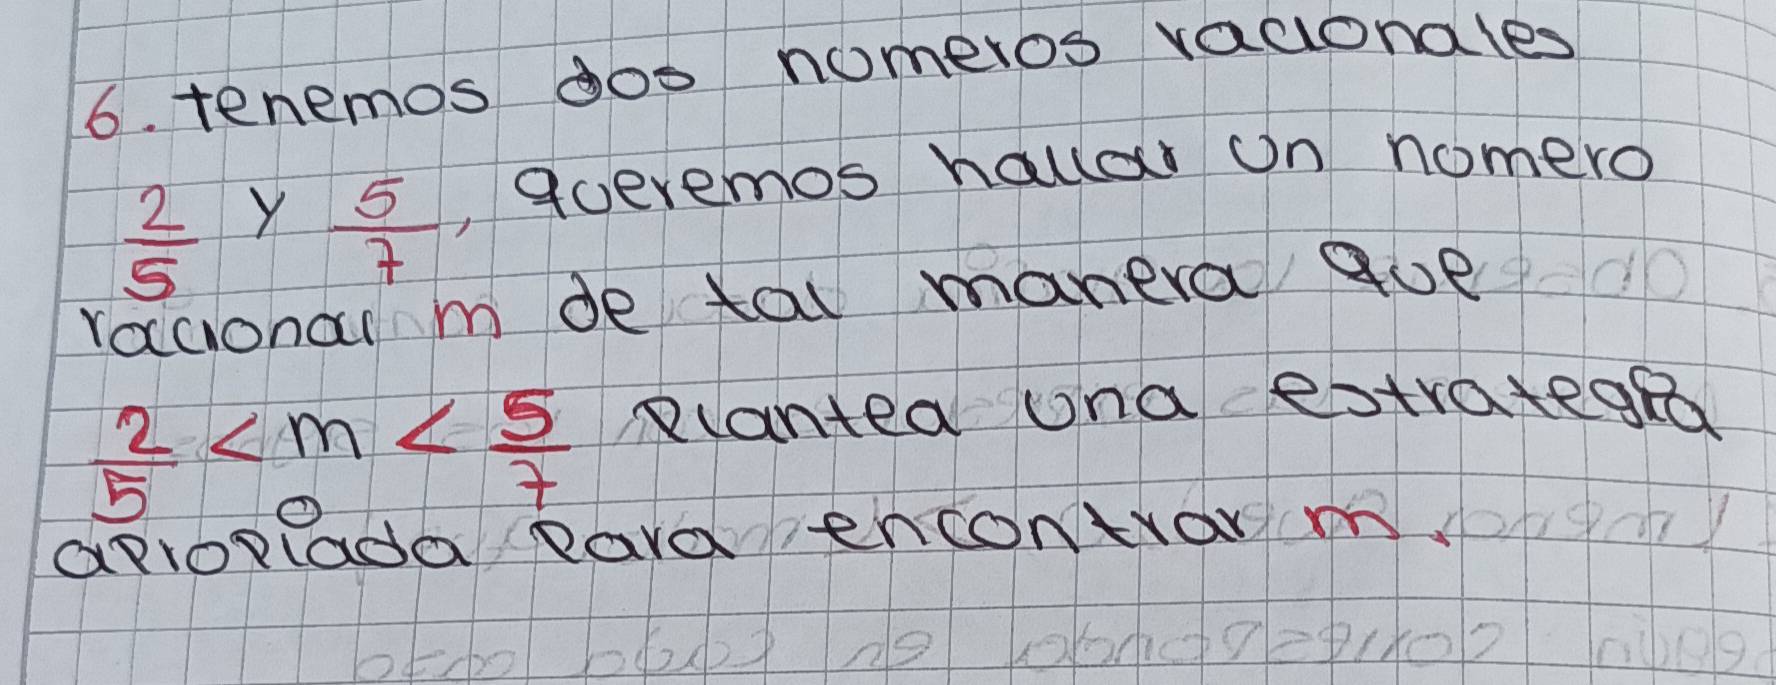 6. tenemos dos numeros racionales
2/5 y 5/7, queremos hallar un numero
racional m de tal manera que
2/5 < m < 5/7 plantea una estrategia
apropiada para encontrar m.